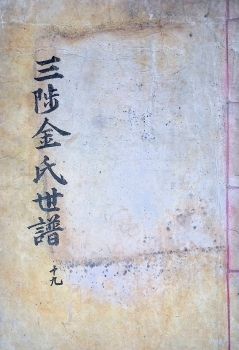 三陟金氏世譜
十九